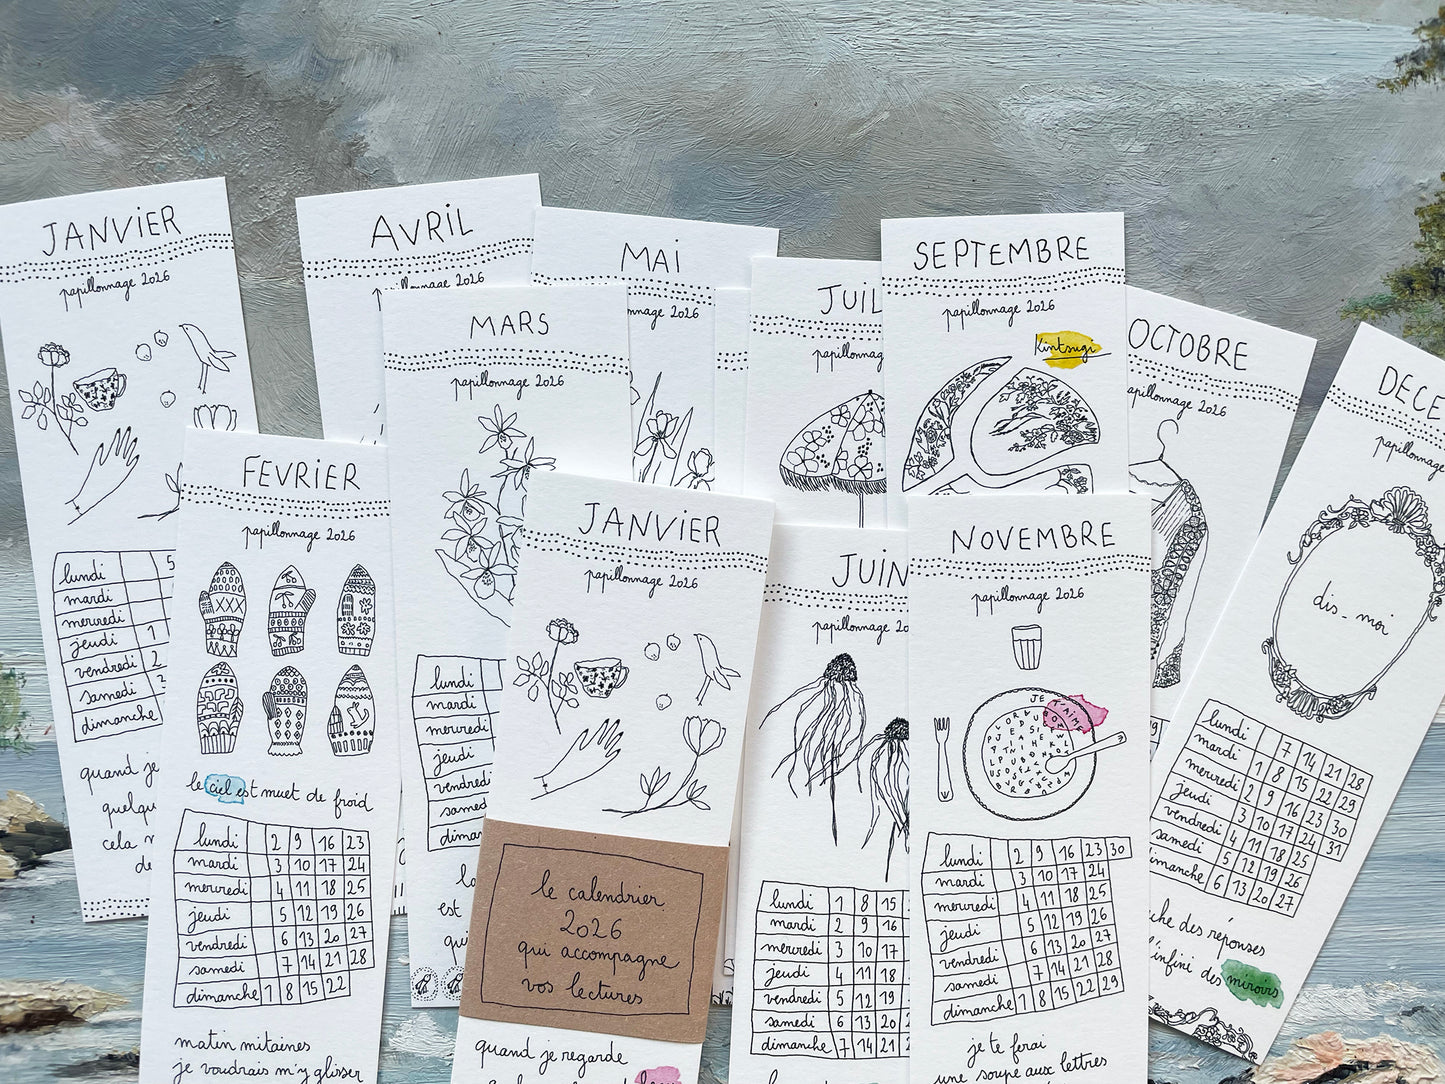 JANVIER
papillonnage 2026
lundi 5
mardi
mercredi
jeudi 1
vendredi 2
samedi 3
dimanche
quand je
quelque
cela
de
AVRIL
papillonnage 2026
MAI
papillonnage 2026
MARS
papillonnage 2026
lundi
mardi
mercredi
jeudi
vendredi
samedi
dimanche
est
qui
FEVRIER
papillonnage 2026
le ciel est muet de froid
lundi 2 9 16 23
mardi 3 10 17 24
mercredi 4 11 18 25
jeudi 5 12 19 26
vendredi 6 13 20 27
samedi 7 14 21 28
dimanche 1 8 15 22
matin mitaines
je voudrais m'y glisser
JANVIER
papillonnage 2026
le calendrier
2026
qui accompagne
vos lectures
quand je regarde
JUIL
papillonnage
JUIN
papillonnage 20
lundi 1 8 15
mardi 2 9 16
mercredi 3 10 17
jeudi 4 11 18
vendredi 5 12 19
samedi 6 13 20
dimanche 7 14 21
SEPTEMBRE
papillonnage 2026
Kintsugi
NOVEMBRE
papillonnage 2026
JE T'AIME
lundi 2 9 16 23 30
mardi 3 10 17 24
mercredi 4 11 18 25
jeudi 5 12 19 26
vendredi 6 13 20 27
samedi 7 14 21 28
dimanche 1 8 15 22 29
je te ferai
une soupe aux lettres
OCTOBRE
papillonnage 2026
DECE
papillonnage
dis-moi
lundi 7 14 21 28
mardi 1 8 15 22 29
mercredi 2 9 16 23 30
jeudi 3 10 17 24 31
vendredi 4 11 18 25
samedi 5 12 19 26
dimanche 6 13 20 27
che des réponses
l'infini des miroirs